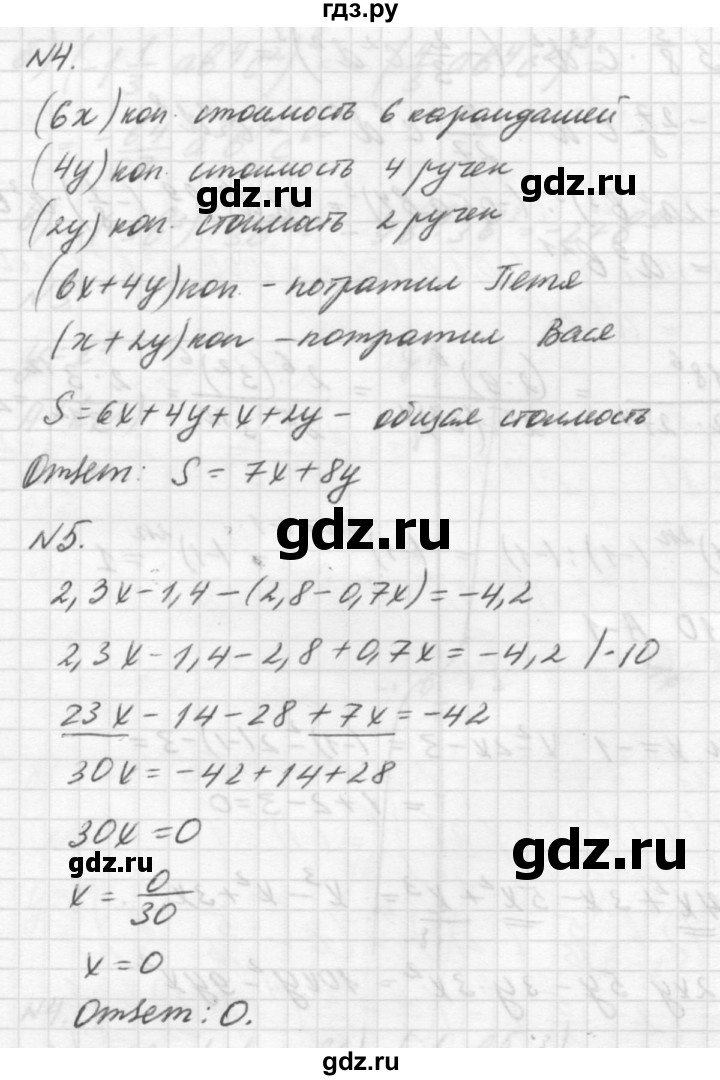 гдз.ру
N4.
(6x) коп. стоимость 6 карандашей
(4y) коп. стоимость 4 ручек
gdz.ru
gdz.ru
(2y) коп. стоимость 2 ручек
(6x+4y) коп. - потратил Петя
(x+2y) коп - потратил Вася
S=6x+4y+x+2y - общая стоимость
Ответ: S = 7x+8y
gdz.ru
N5.
2,3x-1,4-(2,8-0,7x)=-4,2
2,3x-1,4-2,8+0,7x=-4,2 /·10
23x-14-28+7x=-42
30x=-42+14+28
30x=0
gdz.ru
gdz.ru
x = 0/30
x=0
Ответ: 0.
gdz.ru